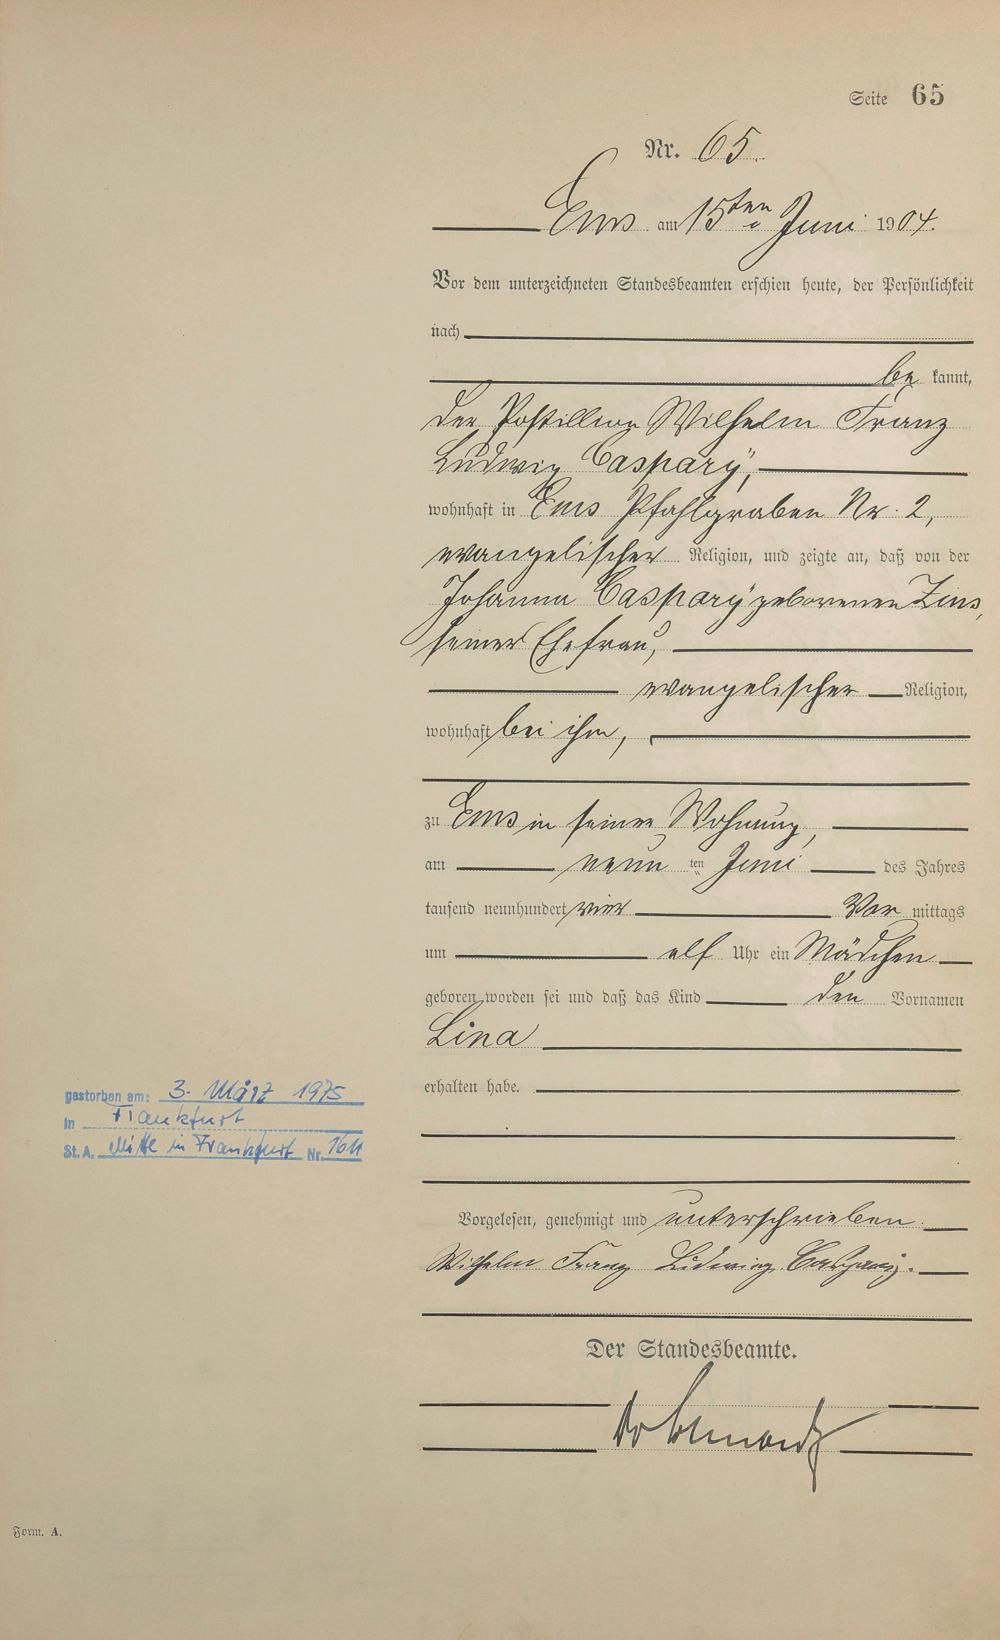 Seite 65
Nr. 65.
Ems am 15ten Juni 1904.
Vor dem unterzeichneten Standesbeamten erschien heute, der Persönlichkeit
nach
be kannt,
der Postillion Wilhelm Franz
Ludwig Caspary,
wohnhaft in Ems Pfahlgraben Nr. 2,
evangelischer Religion, und zeigte an, daß von der
Johanna Caspary geborenen Zins,
seiner Ehefrau,
evangelischer Religion,
wohnhaft bei ihm,
zu Ems in seiner Wohnung,
am neun ten Juni des Jahres
tausend neunhundert vier Vor mittags
um elf Uhr ein Mädchen
geboren worden sei und daß das Kind den Vornamen
Lina
erhalten habe.
gestorben am: 3. März 1975
in Frankfurt
St.A. Mitte in Frankfurt Nr.
Vorgelesen, genehmigt und unterschrieben.
Wilhelm Franz Ludwig Caspary.
Der Standesbeamte.
Form. A.